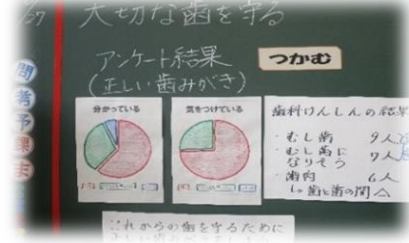 大切な歯を守る
アンケート結果
(正しい歯みがき)
つかむ
問
考
予
課
分かっている
気をつけている
歯科けんしんの結果
・むし歯 9人
・むし歯に
なりそう 7人
・歯肉 6人
歯と歯の間
これからの歯を守るために